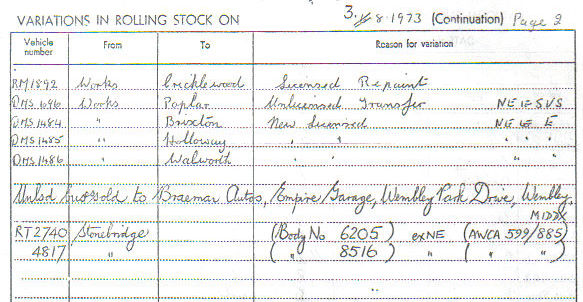 VARIATIONS IN ROLLING STOCK ON 3. 8.1973 (Continuation) Page 2
Vehicle number From To Reason for variation
RM1892 Works Cricklewood Licensed Repaint
DMS 696 Works Poplar Unlicensed Transfer NE LE S US
DMS1484 " Brixton New Licensed NE LE E
DMS1485 " Holloway " " " "
DMS1486 " Walworth " " " "
Unlsd buses sold to Braemar Autos, Empire Garage, Wembley Park Drive, Wembley,
MIDDX
RT2740 Stonebridge (Body No 6205) exNE (AWCA 599/885)
4817 " ( " 8516 ) " ( " " )